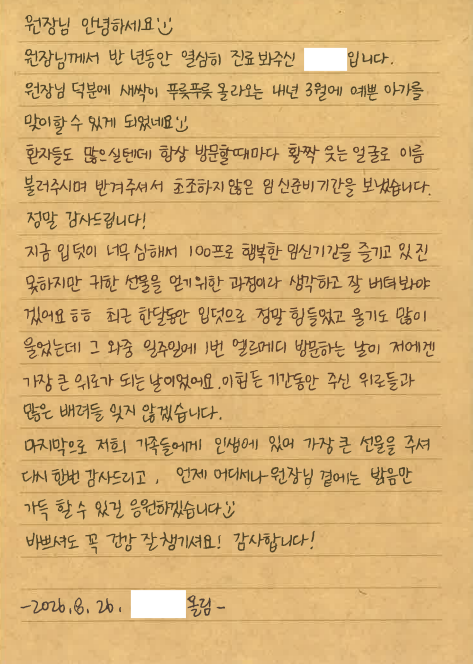 원장님 안녕하세요
원장님께서 반 년동안 열심히 진료봐주신 입니다.
원장님 덕분에 새싹이 푸릇푸릇 올라오는 내년 3월에 예쁜 아가를
맞이할 수 있게 되었네요
환자들도 많으실텐데 항상 방문할때마다 활짝 웃는 얼굴로 이름
불러주시며 반겨주셔서 초조하지않은 임신준비기간을 보냈습니다.
정말 감사드립니다!
지금 입덧이 너무 심해서 100프로 행복한 임신기간을 즐기고 있진
못하지만 귀한 선물을 얻기위한 과정이라 생각하고 잘 버텨봐야
겠어요ㅎㅎ 최근 한달동안 입덧으로 정말 힘들었고 울기도 많이
울었는데 그 와중 일주일에 1번 엘르메디 방문하는 날이 저에겐
가장 큰 위로가 되는 날이었어요. 이 힘든 기간동안 주신 위로들과
많은 배려들 잊지 않겠습니다.
마지막으로 저희 가족들에게 인생에 있어 가장 큰 선물을 주셔
다시 한번 감사드리고, 언제 어디세나 원장님 곁에는 밝음만
가득 할 수 있길 응원하겠습니다
바쁘셔도 꼭 건강 잘 챙기셔요! 감사합니다!
-2026.8.26. 올림-